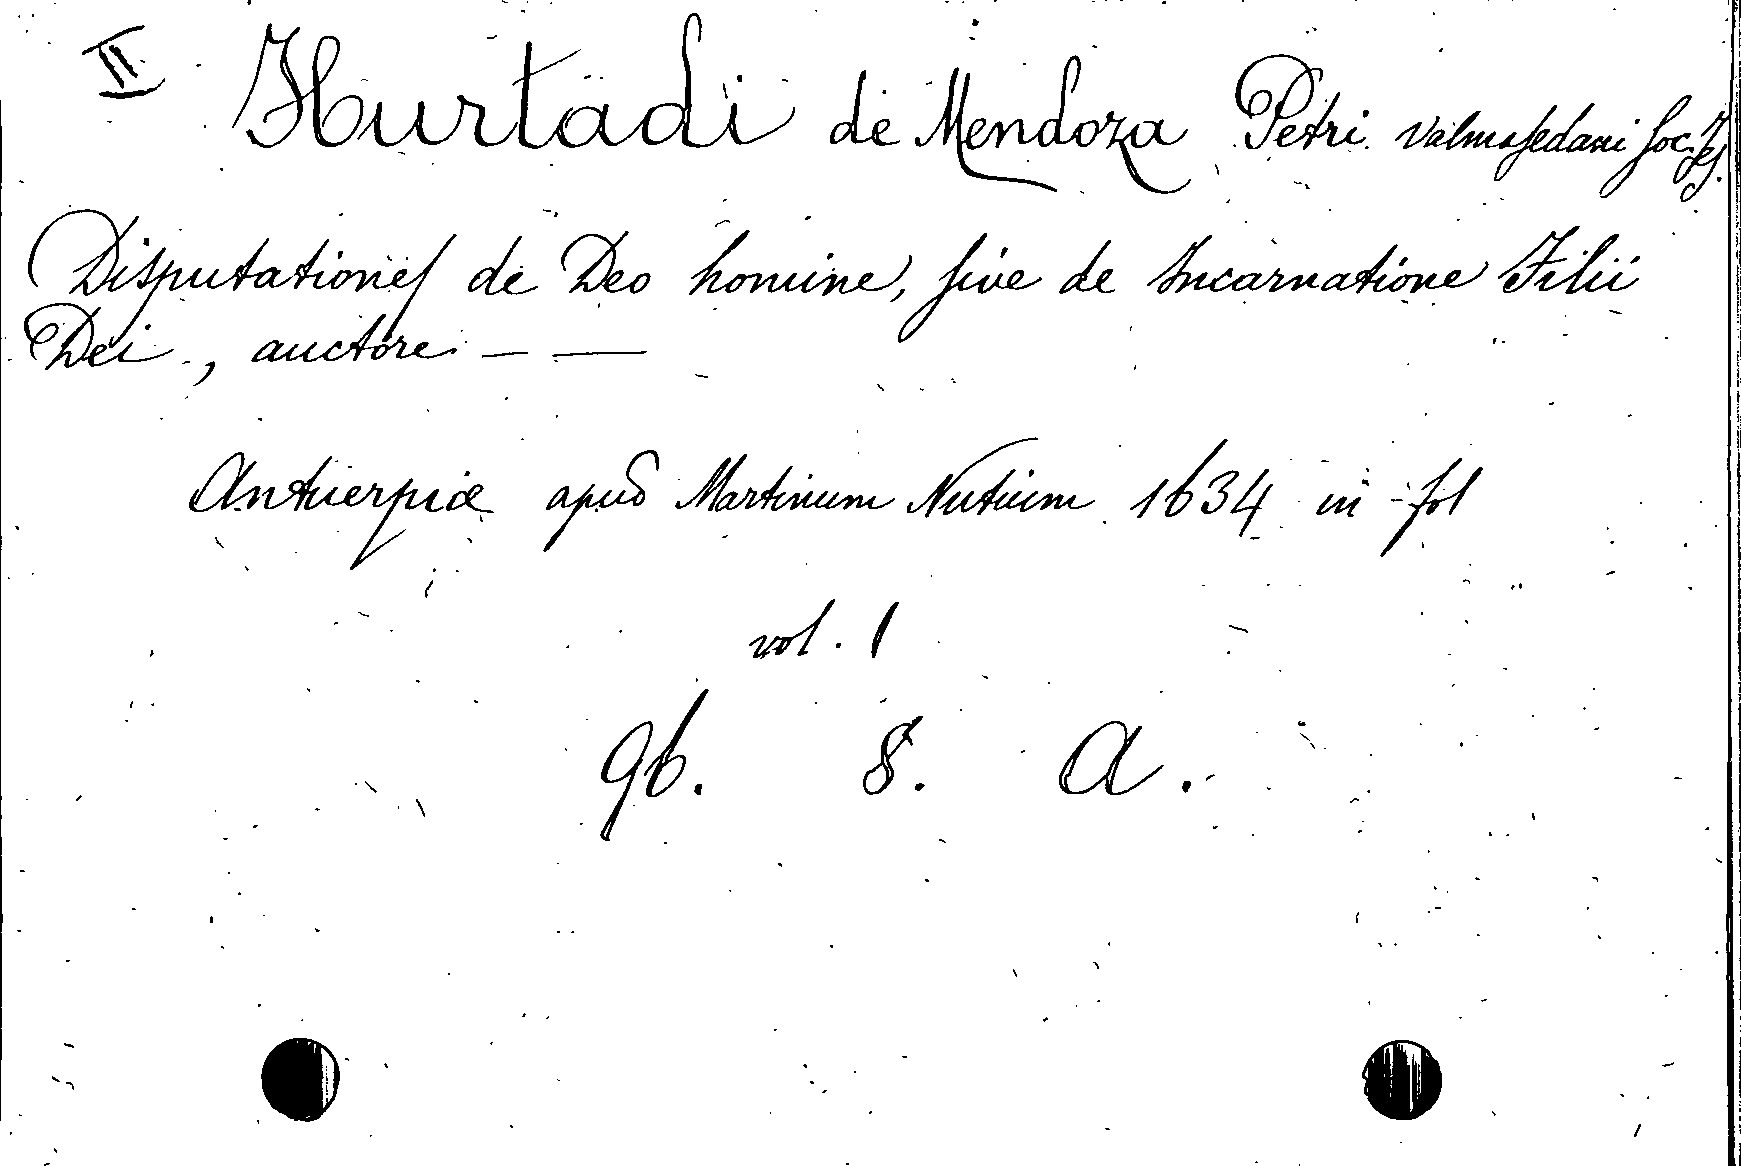 II Hurtadi de Mendoza Petri Valmasedani Soc. Jes.
Disputationes de Deo homine, sive de Incarnatione Filii
Dei, auctore — —
Antuerpiæ apud Martinum Nutium 1634 in fol
vol. 1
96. 8. A.